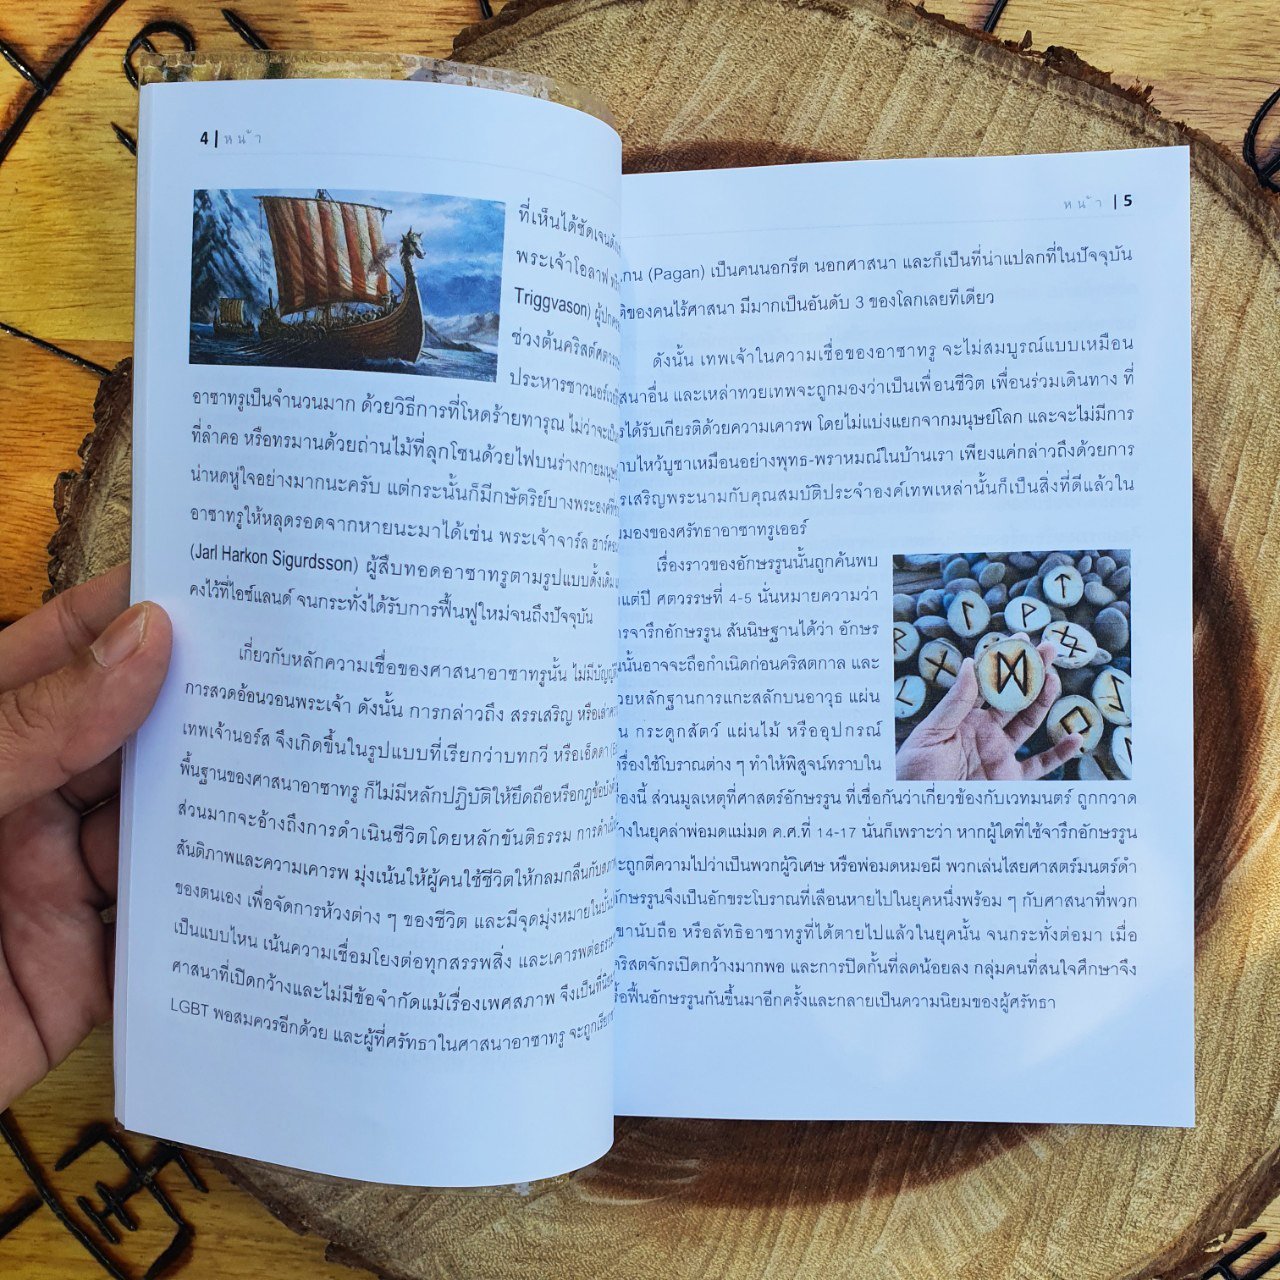 4 | หน้า
ที่เห็นได้ชัดเจน
พระเจ้าโอลาฟ
Triggvason) ผู้
ช่วงต้นคริสต์ศตวรรษ
ประหารชาวนอร์
อาซาทรูเป็นจำนวนมาก ด้วยวิธีการที่โหดร้ายทารุณ ไม่ว่าจะเป็น
ที่ลำคอ หรือทรมานด้วยถ่านไม้ที่ลุกโชนด้วยไฟบนร่างกายมนุษย์
น่าหดหู่ใจอย่างมากนะครับ แต่กระนั้นก็มีกษัตริย์บางพระองค์ที่
อาซาทรูให้หลุดรอดจากหายนะมาได้เช่น พระเจ้าจาร์ล ฮาร์คอน
(Jarl Harkon Sigurdsson) ผู้สืบทอดอาซาทรูตามรูปแบบดั้งเดิม
คงไว้ที่ไอซ์แลนด์ จนกระทั่งได้รับการฟื้นฟูใหม่จนถึงปัจจุบัน
เกี่ยวกับหลักความเชื่อของศาสนาอาซาทรูนั้น ไม่มี
การสวดอ้อนวอนพระเจ้า ดังนั้น การกล่าวถึง สรรเสริญ หรือ
เทพเจ้านอร์ส จึงเกิดขึ้นในรูปแบบที่เรียกว่าบทกวี หรือเอ็ดดา
พื้นฐานของศาสนาอาซาทรู ก็ไม่มีหลักปฏิบัติให้ยึดถือหรือกฎข้อบังคับ
ส่วนมากจะอ้างถึงการดำเนินชีวิตโดยหลักขันติธรรม การ
สันติภาพและความเคารพ มุ่งเน้นให้ผู้คนใช้ชีวิตให้กลมกลืนกับ
ของตนเอง เพื่อจัดการห้วงต่าง ๆ ของชีวิต และมีจุดมุ่งหมายใน
เป็นแบบไหน เน้นความเชื่อมโยงต่อทุกสรรพสิ่ง และเคารพต่อ
ศาสนาที่เปิดกว้างและไม่มีข้อจำกัดแม้เรื่องเพศสภาพ จึงเป็นที่
LGBT พอสมควรอีกด้วย และผู้ที่ศรัทธาในศาสนาอาซาทรู จะถูกเรียก
หน้า | 5
เกน (Pagan) เป็นคนนอกรีต นอกศาสนา และก็เป็นที่น่าแปลกที่ในปัจจุบัน
ของคนไร้ศาสนา มีมากเป็นอันดับ 3 ของโลกเลยทีเดียว
ดังนั้น เทพเจ้าในความเชื่อของอาซาทรู จะไม่สมบูรณ์แบบเหมือน
สนาอื่น และเหล่าทวยเทพจะถูกมองว่าเป็นเพื่อนชีวิต เพื่อนร่วมเดินทาง ที่
รได้รับเกียรติด้วยความเคารพ โดยไม่แบ่งแยกจากมนุษย์โลก และจะไม่มีการ
าบไหว้บูชาเหมือนอย่างพุทธ-พราหมณ์ในบ้านเรา เพียงแค่กล่าวถึงด้วยการ
รเสริญพระนามกับคุณสมบัติประจำองค์เทพเหล่านั้นก็เป็นสิ่งที่ดีแล้วใน
มมองของศรัทธาอาซาทรูเออร์
เรื่องราวของอักษรรูนนั้นถูกค้นพบ
แต่ปี ศตวรรษที่ 4-5 นั่นหมายความว่า
รจารึกอักษรรูน สันนิษฐานได้ว่า อักษร
นนั้นอาจจะถือกำเนิดก่อนคริสตกาล และ
วยหลักฐานการแกะสลักบนอาวุธ แผ่น
น กระดูกสัตว์ แผ่นไม้ หรืออุปกรณ์
รื่องใช้โบราณต่าง ๆ ทำให้พิสูจน์ทราบใน
องนี้ ส่วนมูลเหตุที่ศาสตร์อักษรรูน ที่เชื่อกันว่าเกี่ยวข้องกับเวทมนตร์ ถูกกวาด
้างในยุคล่าพ่อมดแม่มด ค.ศ.ที่ 14-17 นั่นก็เพราะว่า หากผู้ใดที่ใช้จารึกอักษรรูน
ะถูกตีความไปว่าเป็นพวกผู้วิเศษ หรือพ่อมดหมอผี พวกเล่นไสยศาสตร์มนตร์ดำ
ักษรรูนจึงเป็นอักขระโบราณที่เลือนหายไปในยุคหนึ่งพร้อม ๆ กับศาสนาที่พวก
ขานับถือ หรือลัทธิอาซาทรูที่ได้ตายไปแล้วในยุคนั้น จนกระทั่งต่อมา เมื่อ
คริสตจักรเปิดกว้างมากพอ และการปิดกั้นที่ลดน้อยลง กลุ่มคนที่สนใจศึกษาจึง
รื้อฟื้นอักษรรูนกันขึ้นมาอีกครั้งและกลายเป็นความนิยมของผู้ศรัทธา